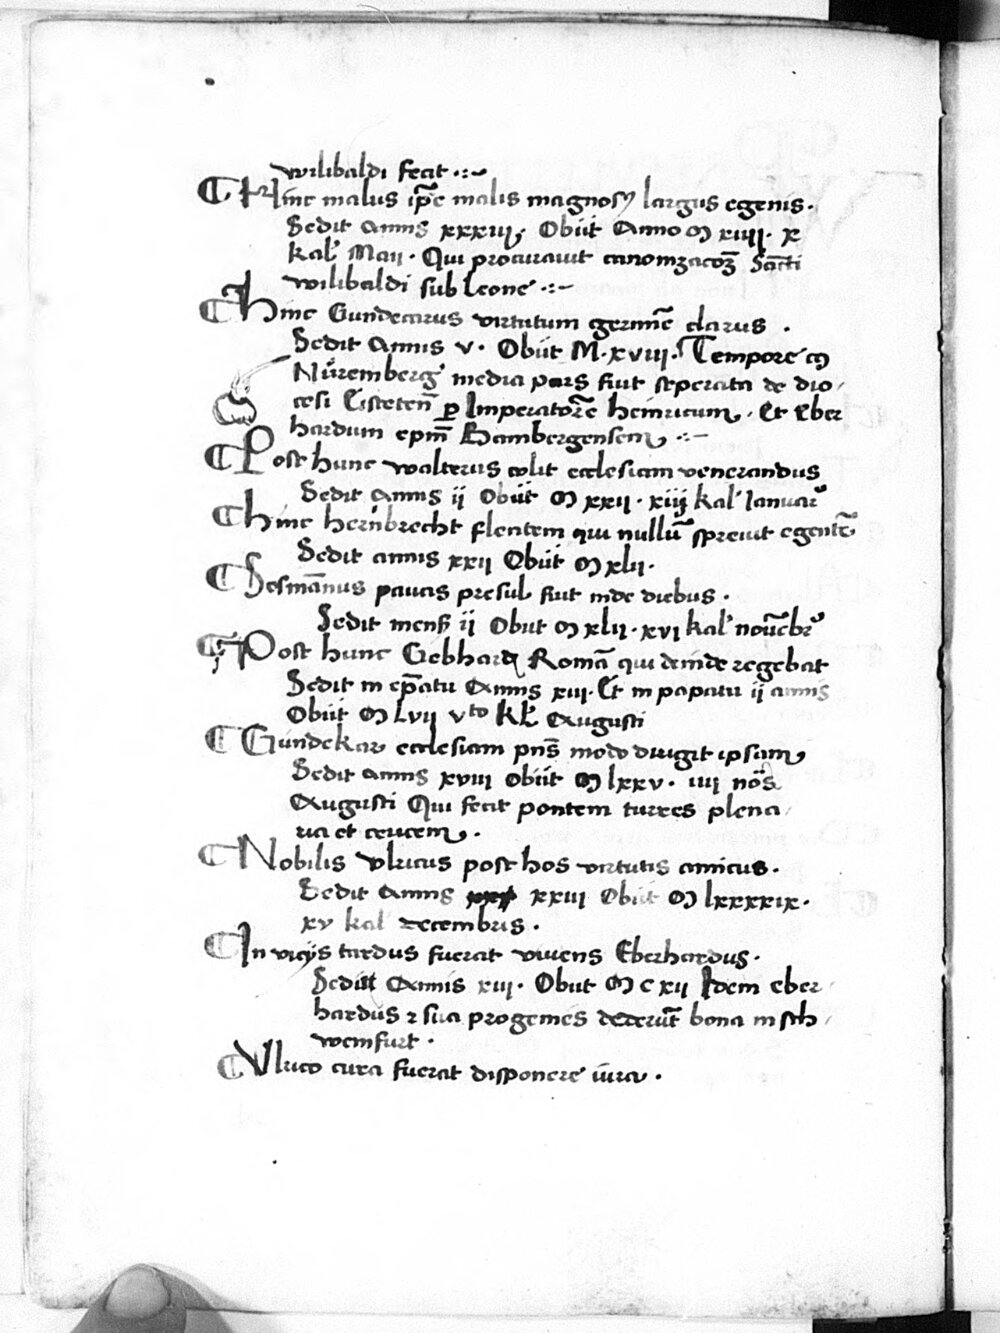 wilibaldi fecit .:~
¶ Hinc malus ip̄e malis magnosꝫ largus egenis.
Sedit Annis xxxiij, Obiit Anno M xiiij. x
kal' Maii. Qui procurauit canonizacōꝫ Sāncti
wilibaldi sub Leone .:~
¶ Hinc Gundecarus virtutum germīe clarus .
Sedit Annis v. Obiit M. xviii. Tempore eꝰ
Nůremberg media pars fuit seperata de dio/
cesi Eistetēn ꝑ Imperatorē heinricum, Et Eber
hardum epm̄ Bambergensem, .:~
¶ Post hunc walterus colit ecclesiam venerandus
Sedit Annis ij Obiit M xxij. xiij kal' Januar'
¶ hinc hernbrecht flentem qui nullū spreuit egentē
Sedit annis xxij Obiit M xlii.
¶ Gesmānus paucis presul fuit inde diebus .
Sedit mens̄ ij Obiit M xlii. xvi kal' nouēbr'
¶ Post hunc Gebhardꝰ Romā qui deinde regebat
Sedit in ep̄atu Annis xiii. Et in papatu ij annis
Obiit M Lvii vto kl' Augusti
¶ Gundekar ecclesiam pn̄s modo dirigit ipsam,
Sedit annis xviii obiit M lxxv. iiii noās
Augusti Qui fecit pontem turres plena/
ria et crucem, .
¶ Nobilis vlricus post hos virtutis amicus.
Sedit Annis xxiii Obiit M lxxxxix.
xv kal' decembris .
¶ In vicijs tardus fuerat viuens Eberhardus.
Sedit Annis xiii. Obiit M c xii Idem eber/
hardus ꝛ sua progenies dederūt bona in sch/
weinfurt .
¶ Vlrico cura fuerat disponere iura .